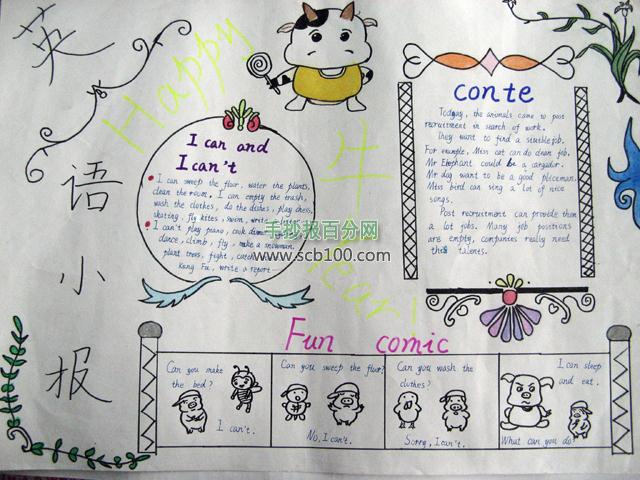 英
语
小
报
Happy
牛
Year!
I can and
I can't
I can sweep the floor, water the plants,
clean the room. I can empty the trash,
wash the clothes, do the dishes, play chess,
skating, fly kites, swim, write
I can't play piano, cook
dance, climb, fly, make a snowman,
plant trees, fight, catch
Kung Fu, write a report
手抄报百分网
www.scb100.com
conte
Today, the animals came to post
recruitment in search of work.
They want to find a suitable job.
For example, Miss cat can do clean job.
Mr Elephant could be a cargador.
Mr dog want to be a good pliceman.
Miss bird can sing a lot of nice
songs.
Post recruitment can provide them
a lot jobs. Many job positions
are empty, companies really need
this talents.
Fun comic
Can you make
the bed?
I can't.
Can you sweep the floor?
No, I can't.
Can you wash the
clothes?
Sorry, I can't.
I can sleep
and eat.
What can you do?